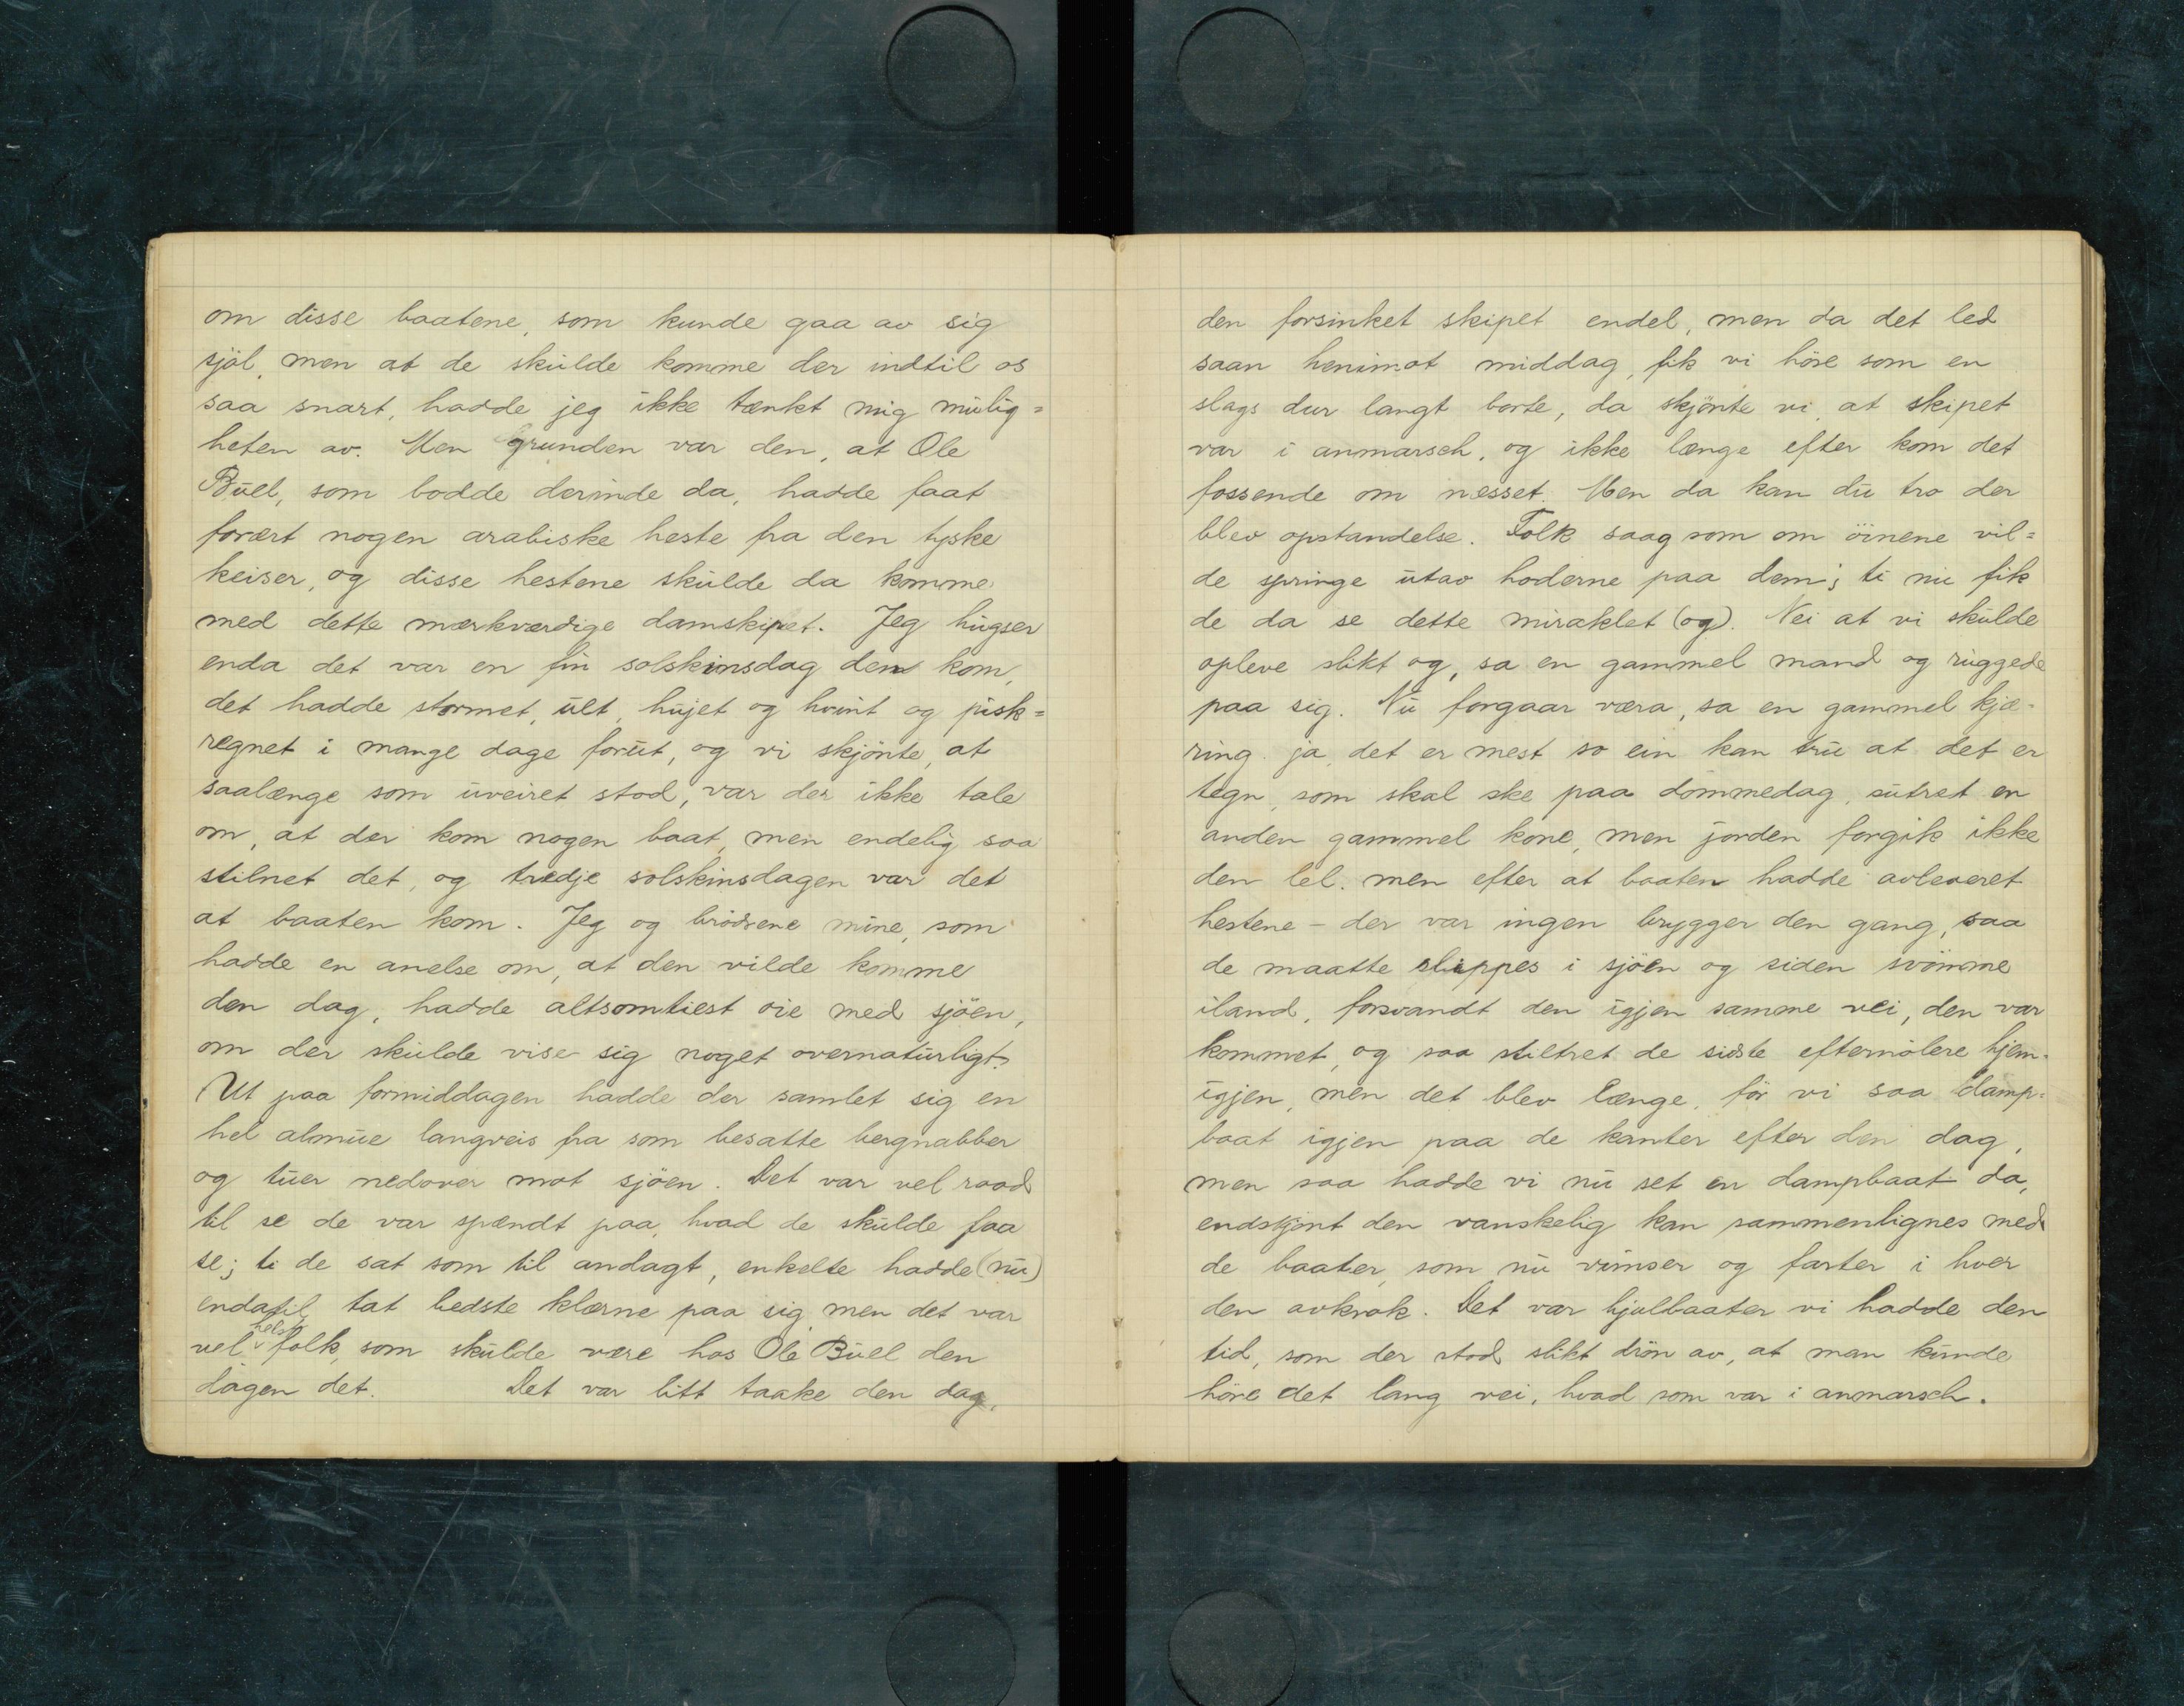 om disse baatene, som kunde gaa av sig
sjøl, men at de skulde komme der indtil os
saa snart, hadde jeg ikke tænkt mig mulig=
heten av. Men grunden var den, at Ole
Buel, som bodde derinde da, hadde faat
forært nogen arabiske heste fra den tyske
keiser, og disse hestene skulde da komme
med dette mærkværdige damskipet. Jeg hugser
enda det var en fin solskinsdag den kom,
det hadde stormet, ult, hujet og hvint og pisk=
regnet i mange dage forut, og vi skjönte, at
saalænge som uveiret stod, var der ikke tale
om, at der kom nogen baat, men endelig saa
stilnet det, og tredje solskinsdagen var det
at baaten kom. Jeg og brödrene mine, som
hadde en anelse om, at den vilde komme
den dag, hadde altsomtiest öie med sjöen,
om der skulde vise sig noget overnaturligt.
Ut paa formiddagen hadde der samlet sig en
hel almue langveis fra som besatte bergnabber
og tuer nedover mot sjöen. Det var vel raad
til se de var spændt paa, hvad de skulde faa
se; ti de sat som til andagt, enkelte hadde (nu)
endatil tat bedste klærne paa sig, men det var
vel helst folk, som skulde være hos Ole Buel den
dagen det. Det var litt taake den dag,
den forsinket skipet endel, men da det led
saan henimot middag, fik vi höre som en
slags dur langt borte, da skjönte vi, at skipet
var i anmarsch, og ikke længe efter kom det
fossende om nesset. Men da kan du tro der
blev opstandelse. Folk saag som om öinene vil=
de springe utav hoderne paa dem; ti nu fik
de da se dette miraklet (og). Nei at vi skulde
opleve slikt og, sa en gammel mand og ruggede
paa sig. Nu forgaar væra, sa en gammel kjæ-
ring. ja, det er mest so ein kan tru at det er
tegn, som skal ske paa dommedag, sutret en
anden gammel kone, men jorden forgik ikke
den lel. men efter at baaten hadde avleveret
hestene - der var ingen brygger den gang, saa
de maatte slippes i sjöen og siden svömme
iland, forsvandt den igjen samme vei, den var
kommet, og saa stiltret de sidste efternölere hjem-
igjen, men det blev længe, för vi saa damp=
baat igjen paa de kanter efter den dag,
men saa hadde vi nu set en dampbaat da,
endskjönt den vanskelig kan sammenlignes med
de baater, som nu vimser og farter i hver
den avkrok. Det var hjulbaater vi hadde den
tid, som der stod slikt drön av, at man kunde
höre det lang vei, hvad som var i anmarsch.